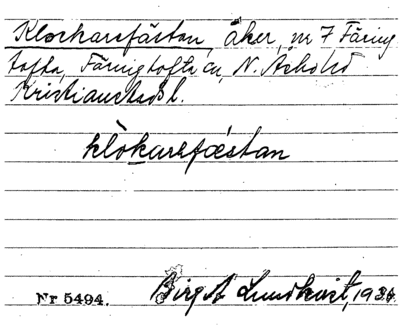 Klockarefästan, åker, nr 7 Färing
tofta, Färingtofta sn, N. Åsbo hd
Kristianstads l.
klòkarefæ̀stan
Nr 5494. Birgit Lundkvist, 1936